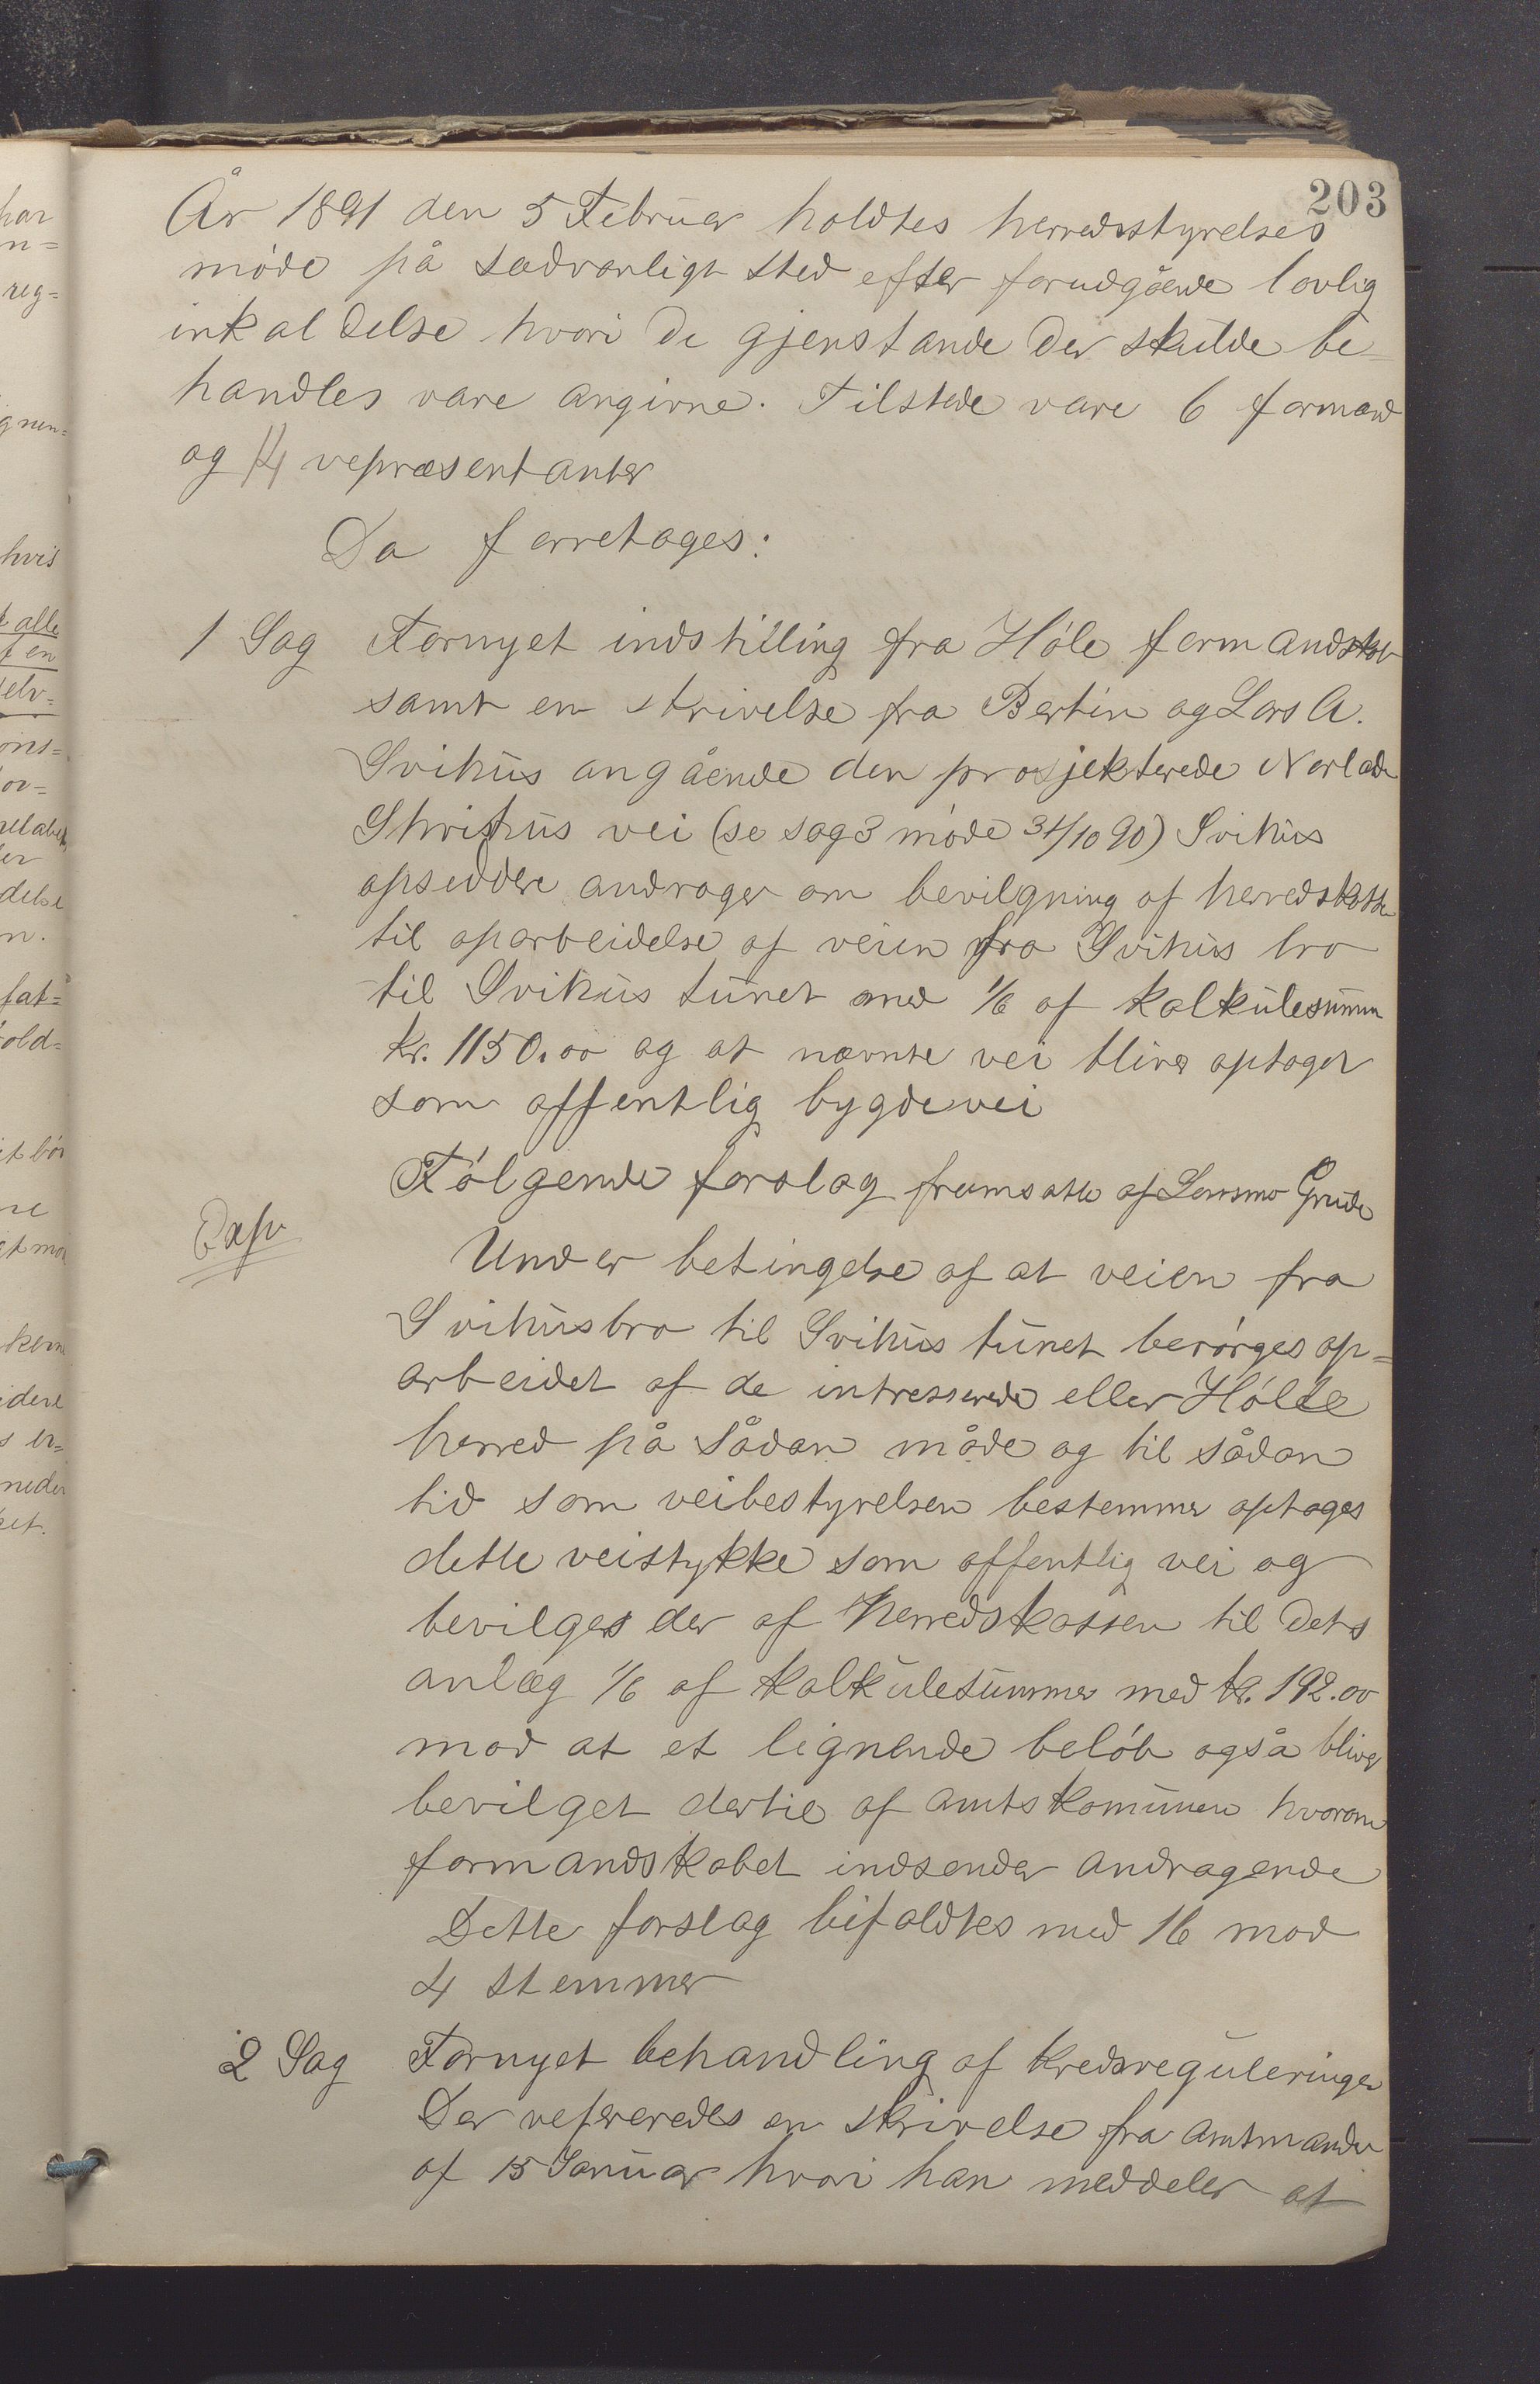 203
År 1891 den 5 Februar holdtes herredsstyrelses
møde på sædvanligt sted efter forudgående lovlig
inkaldelse hvori de gjenstande der skulde be-
handles vare angivne. Tilstede vare 6 formænd
og 14 repræsentanter
Da foretages:
1 Sag Fornyet indstilling fra Høle formandskab
samt en skrivelse fra Bertin og Lars A.
Svihus angående den prosjekterede Norland
Svihus vei (se sag 3 møde 31/10 90) Svihus
opsiddere andrager om bevilgning af herredskassen
til oparbeidelse af veien fra Svihus bro
til Svihus tunet med 1/6 af kalkulesummen
kr. 1150.00 og at nævnte vei bliver optaget
som offentlig bygdevei
Følgende forslag fremsatte af Lensmo Grude
Exp
Under betingelse af at veien fra
Svihusbro til Svihus tunet besørges op-
arbeidet af de intresserede eller Høle
herred på sådan måde og til sådan
tid som veibestyrelsen bestemmer optages
dette veistykke som offentlig vei og
bevilges der af herredskassen til dets
anlæg 1/6 af kalkulesummen med kr. 192.00
mod at et lignende beløb også bliver
bevilget dertil af amtskomunen hvorom
formandskabet indsender andragende
Dette forslag bifaldtes med 16 mod
4 stemmer
2 Sag Fornyet behandling af kredsreguleringen
Der refereredes en skrivelse fra amtmanden
af 15 Januar hvori han meddeler at